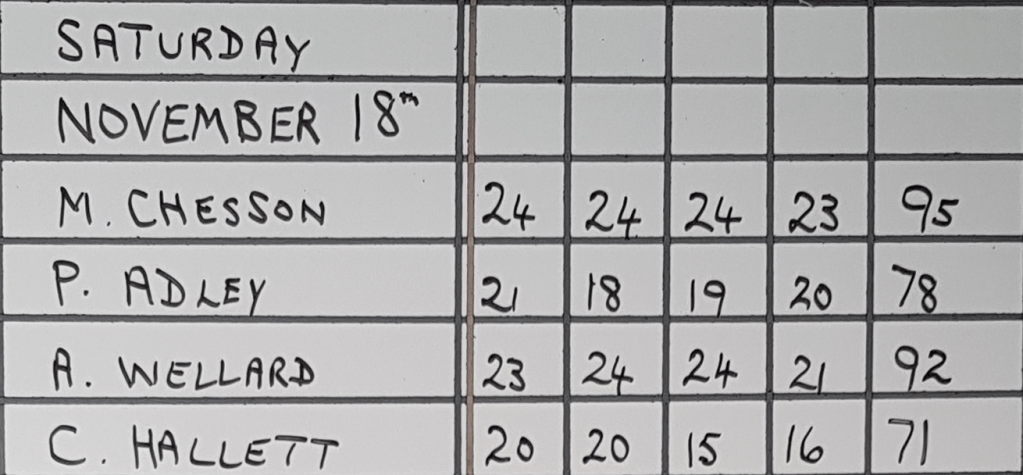 SATURDAY
NOVEMBER 18th
M. CHESSON 24 24 24 23 95
P. ADLEY 21 18 19 20 78
A. WELLARD 23 24 24 21 92
C. HALLETT 20 20 15 16 71